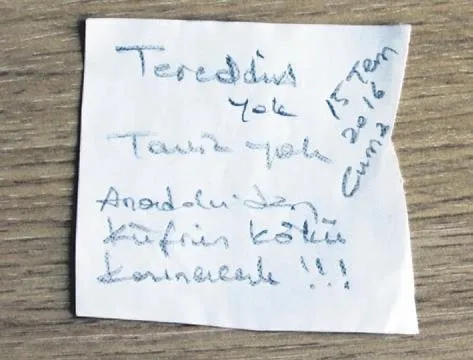 Tereddüt
yok
Taviz yok
Anadolu'dan
Küfrün kökü
kazınacak !!!
15 Tem
2016
Cuma